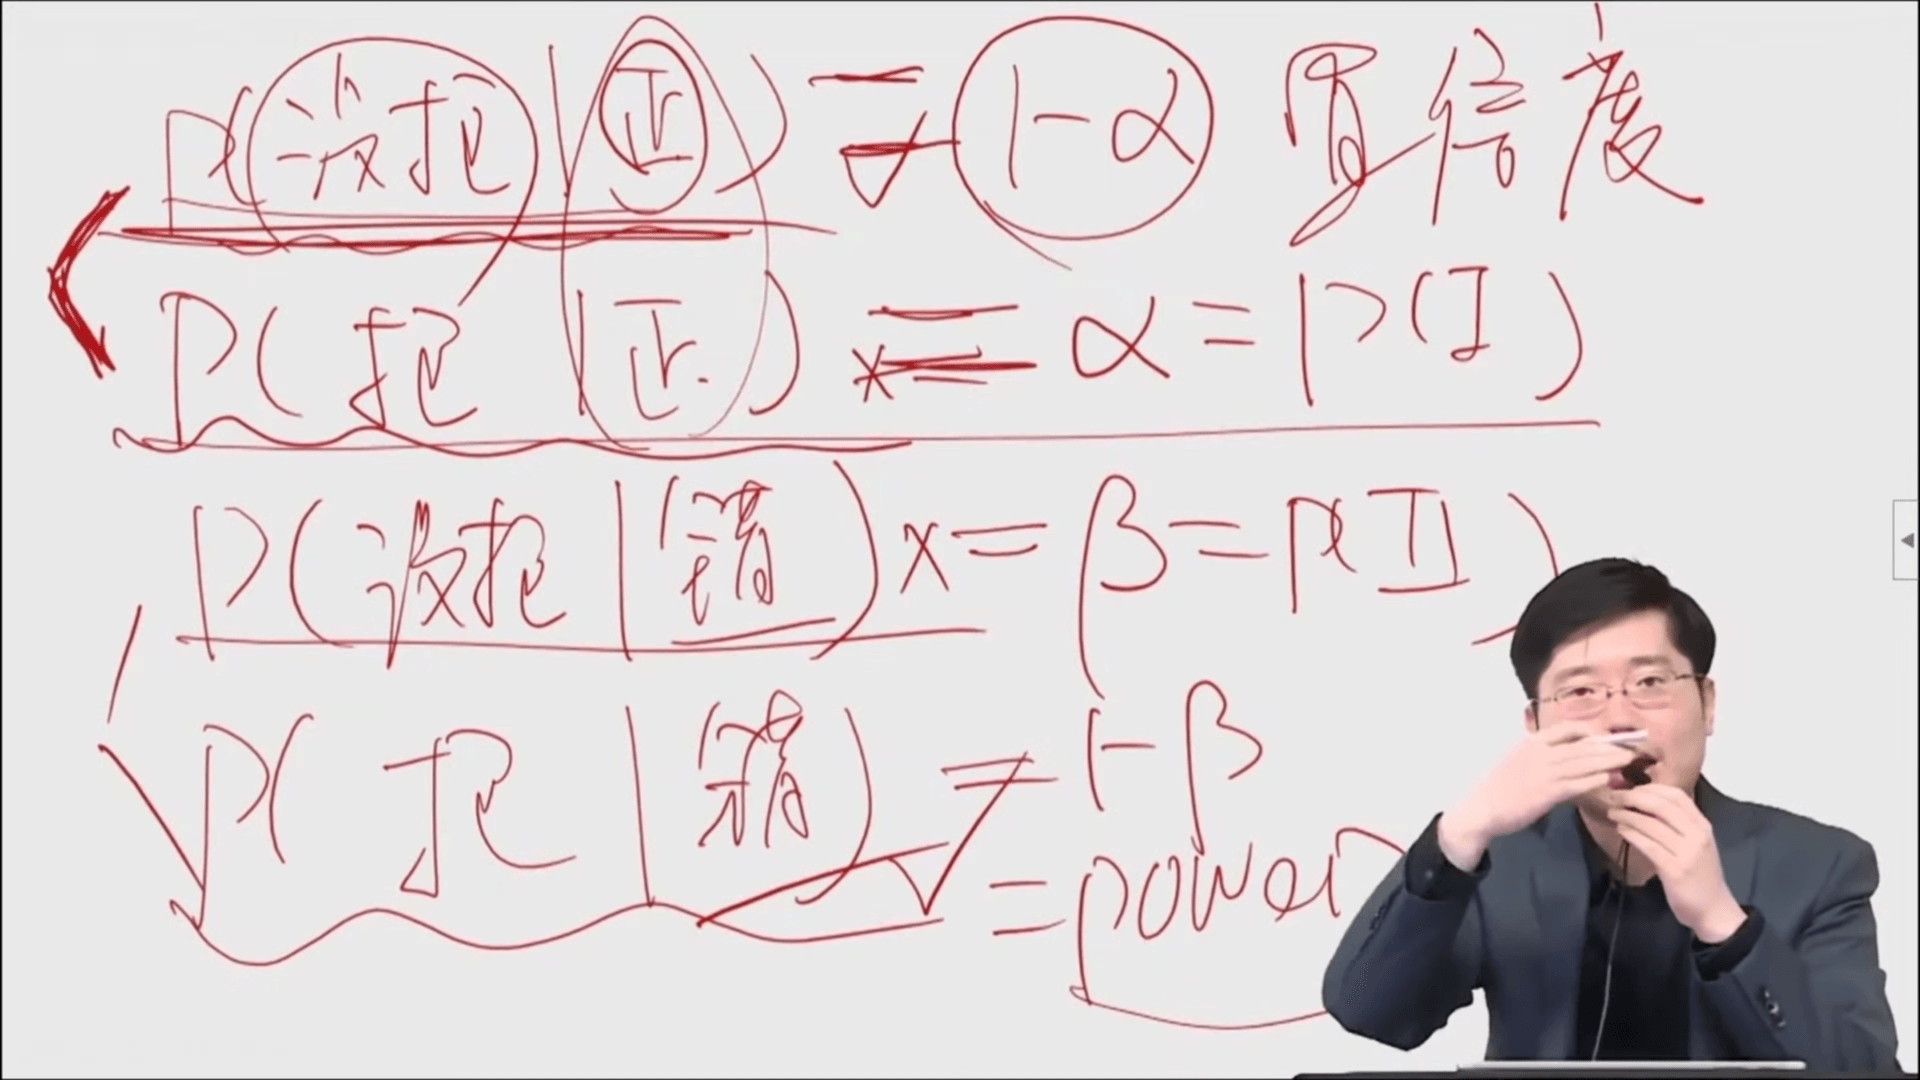 P(没拒|正) = 1-α 置信度
P(拒|正) x= α = P(I)
P(没拒|错) x= β = P(II)
P(拒|错) = 1-β
= power